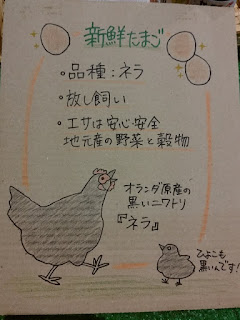 新鮮たまご
・品種：ネラ
・放し飼い
・エサは安心安全
地元産の野菜と穀物
オランダ原産の
黒いニワトリ
『ネラ』
ひよこも
黒いんです！